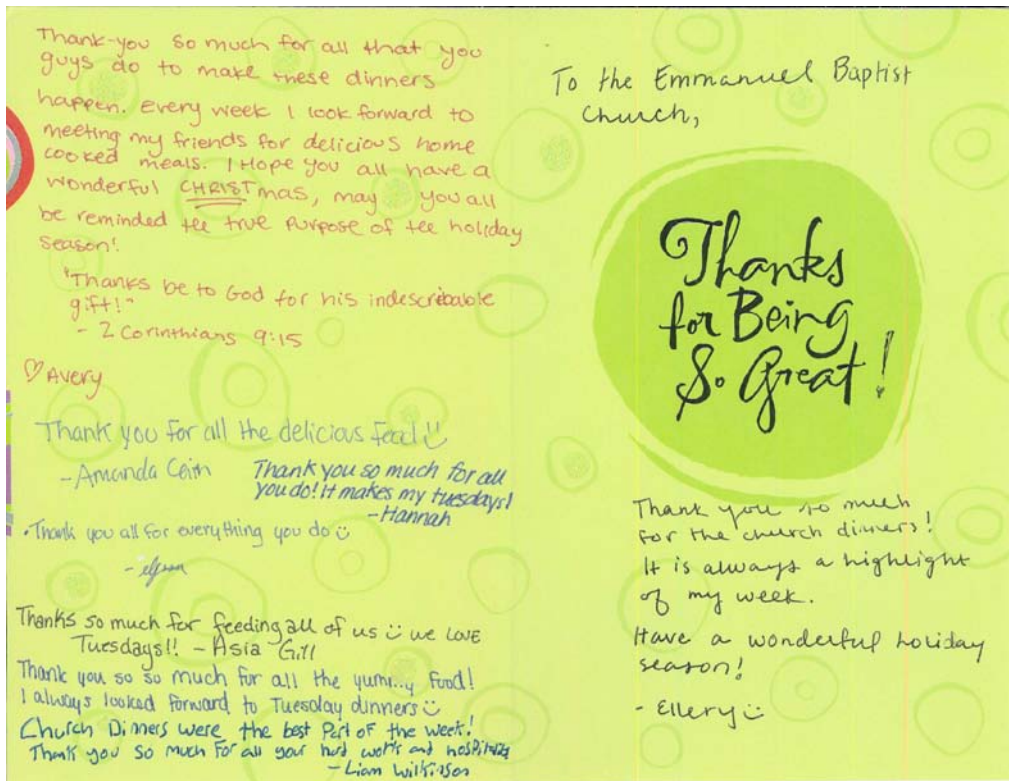 Thank-you so much for all that you
guys do to make these dinners
happen. Every week I look forward to
meeting my friends for delicious home
cooked meals. I Hope you all have a
wonderful CHRISTmas, may you all
be reminded tee true purpose of tee holiday
season!
"Thanks be to God for his indescribable
gift!"
- 2 Corinthians 9:15
♡ Avery
Thank you for all the delicious food!
- Amanda
Thank you so much for all
you do! It makes my tuesdays!
- Hannah
Thank you all for everything you do
Thanks so much for feeding all of us we love
Tuesdays!! - Asia Gill
Thank you so so much for all the yummy food!
I always looked forward to Tuesday dinners
Church Dinners were the best Part of the week!
Thank you so much for all your hard work and hospitality
- Liam Wilkinson
To the Emmanuel Baptist
Church,
Thanks
for Being
So Great!
Thank you so much
for the church dinners!
It is always a highlight
of my week.
Have a wonderful holiday
season!
- Ellery